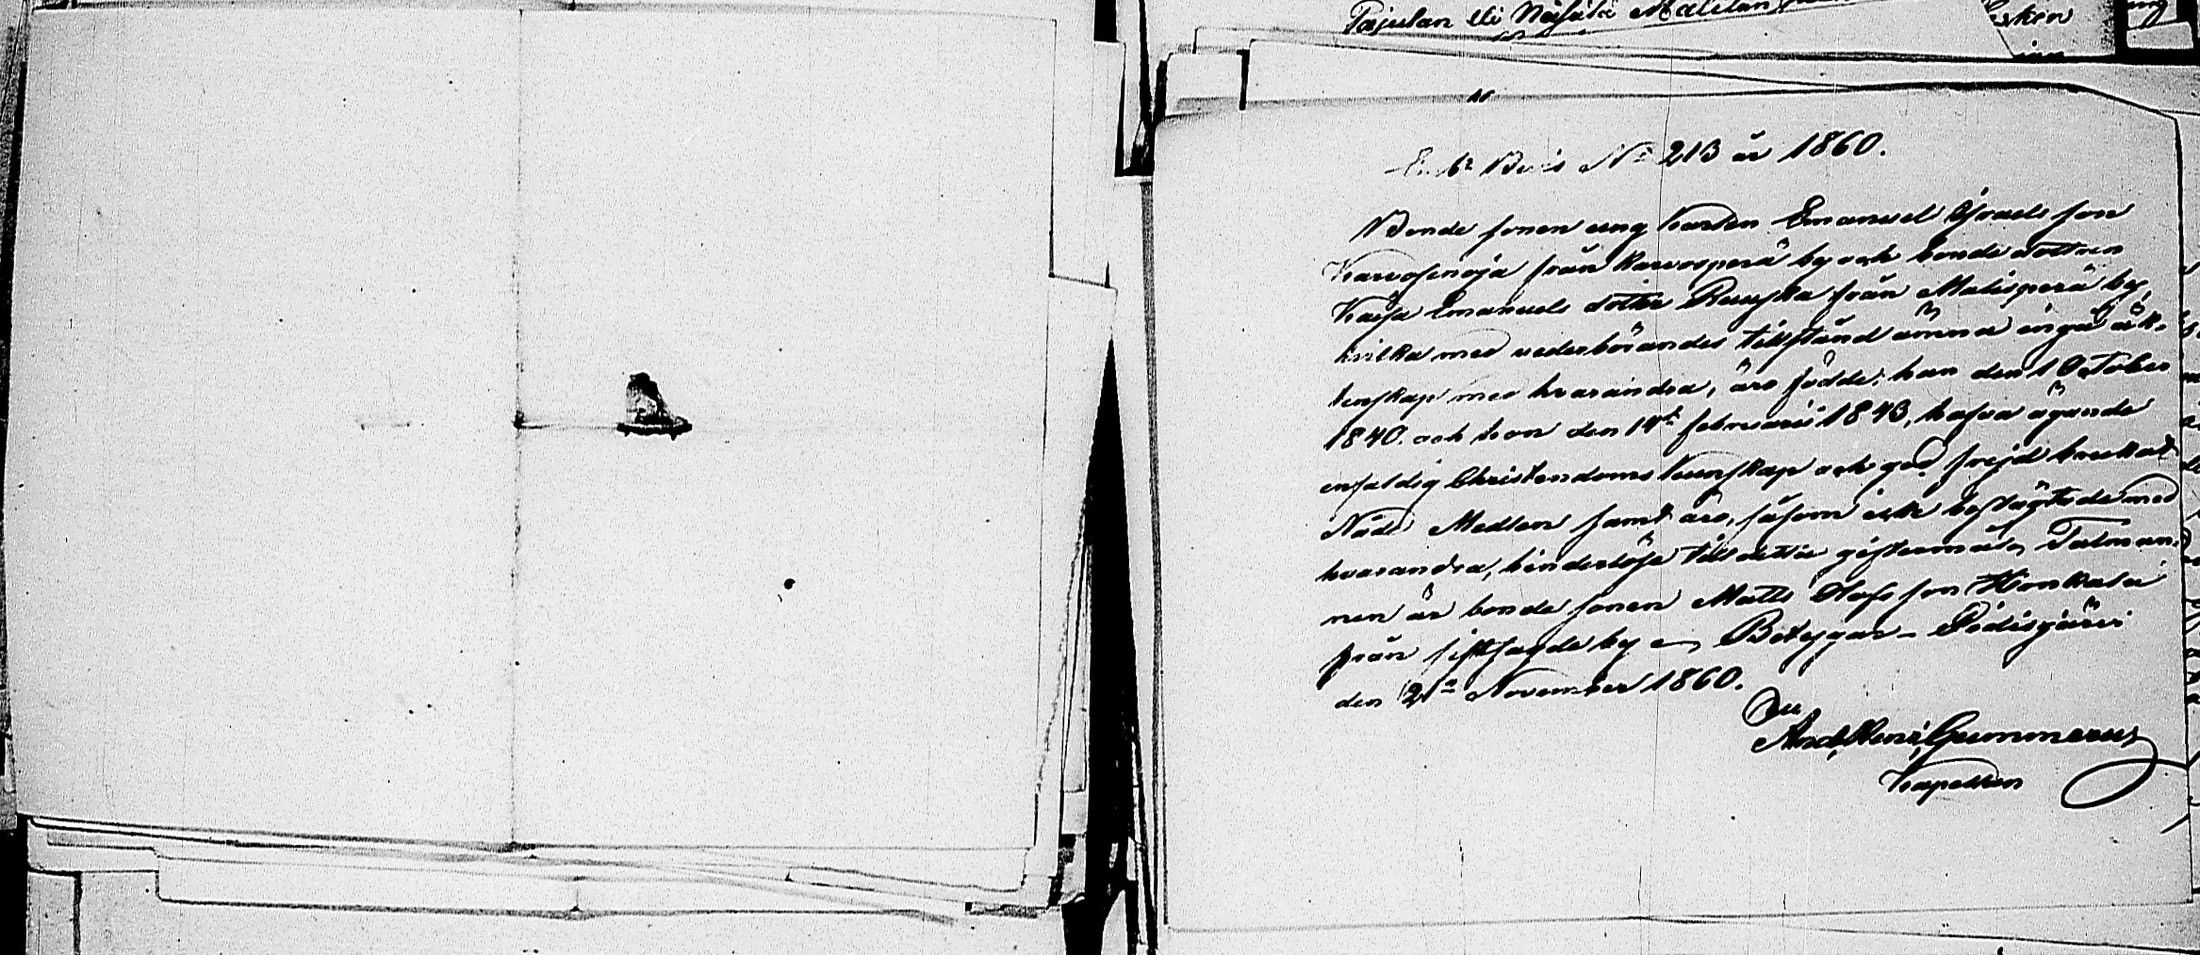 Pajulan eli Näsälä Mattilan
N: 213 år 1860.
Bonde sonen ung karlen Emanuel Israels son
Karvosenoja från Karvosperä by och bonde dottren
Kaisa Emanuels dotter Ruuska från Malisperä by,
hvilka med vederbörandes tillstånd ämna ingå äk-
tenskap med hvarandra, äro födde: han den 1 October
1840. och hon den 14de februarii 1843, hafva ägande
enfaldig Christendoms kunskap och god frejd brukat
Nåde Medlen samt äro, såsom icke beslägtade med
hvarandra, hinderlöse till detta giftermål. Talman-
nen är bonde sonen Matts Olofs son Honkala
från sistsagde by. Betygar. Pidisjärvi
den 2a November 1860.
And. Henr. Gummerus
Kapellan